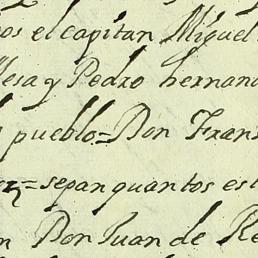 os el capitan Miguel
Mesa y Pedro hernand
pueblo = Don Fran
= sepan quantos est
n Don Juan de Re